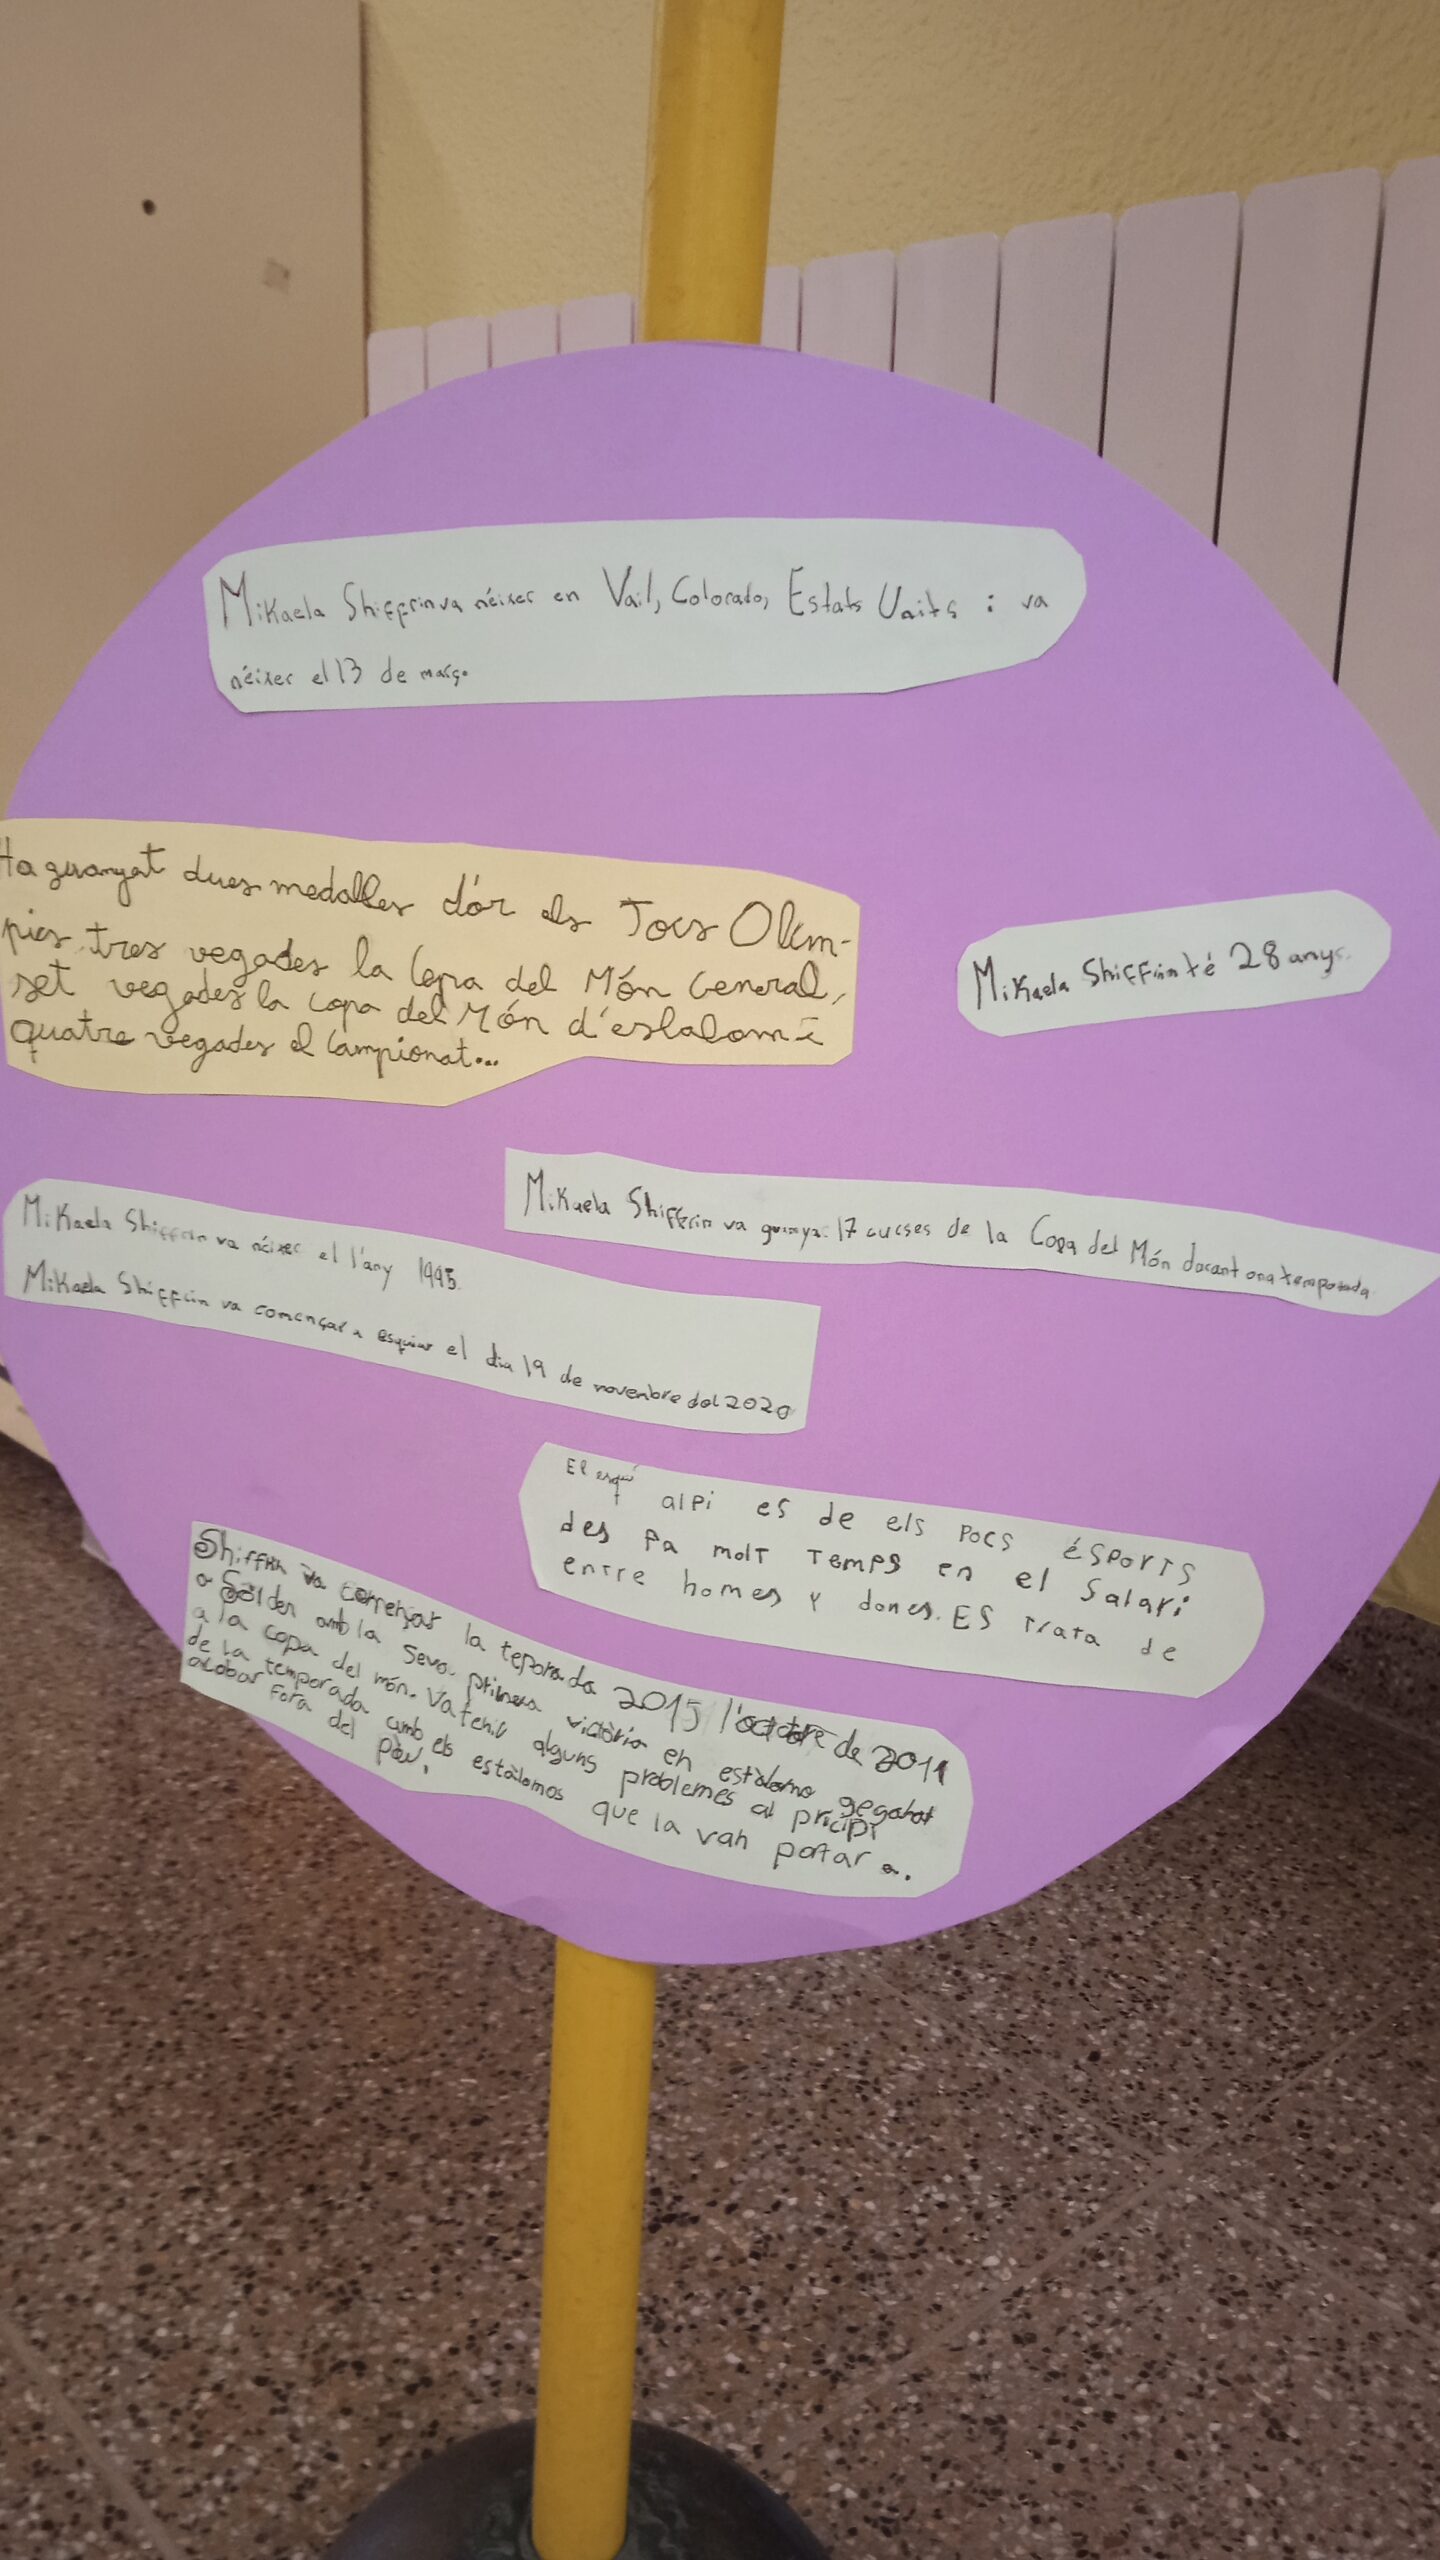 Mikaela Shiffrin va néixer en Vail, Colorado, Estats Units i va
néixer el 13 de març.
Ha guanyat dues medalles d'or als Jocs Olím-
pics, tres vegades la Copa del Món General,
set vegades la copa del Món d'eslalom i
quatre vegades el Campionat...
Mikaela Shiffrin té 28 anys.
Mikaela Shiffrin va guanyar 17 curses de la Copa del Món durant ona temporada
Mikaela Shiffrin va néixer el l'any 1995.
Mikaela Shiffrin va començar a esquiar el dia 19 de novembre del 2020
El esquí alpi es de els pocs ésports
des fa molt temps en el Salari
entre homes y dones. ES trata de
Shiffrin va començar la teporada 2015 l'octubre de 2011
a Sölden amb la seva primera victòria en estàlomo gegahat
a la copa del món. Va tenir alguns problemes al pricipi
de la temporada amb els estàlomos que la van portar a.
acobar fora del pòu.